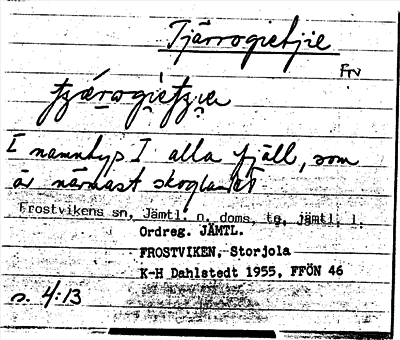 Tjärrogietjie
Frv
I namntyp I alla fjäll, som
är närmast skoglandet
Frostvikens sn, Jämtl. n. doms, te, jämtl. l.
Ordreg. JÄMTL.
FROSTVIKEN, Storjola
K-H Dahlstedt 1955, FFÖN 46
s. 4:13